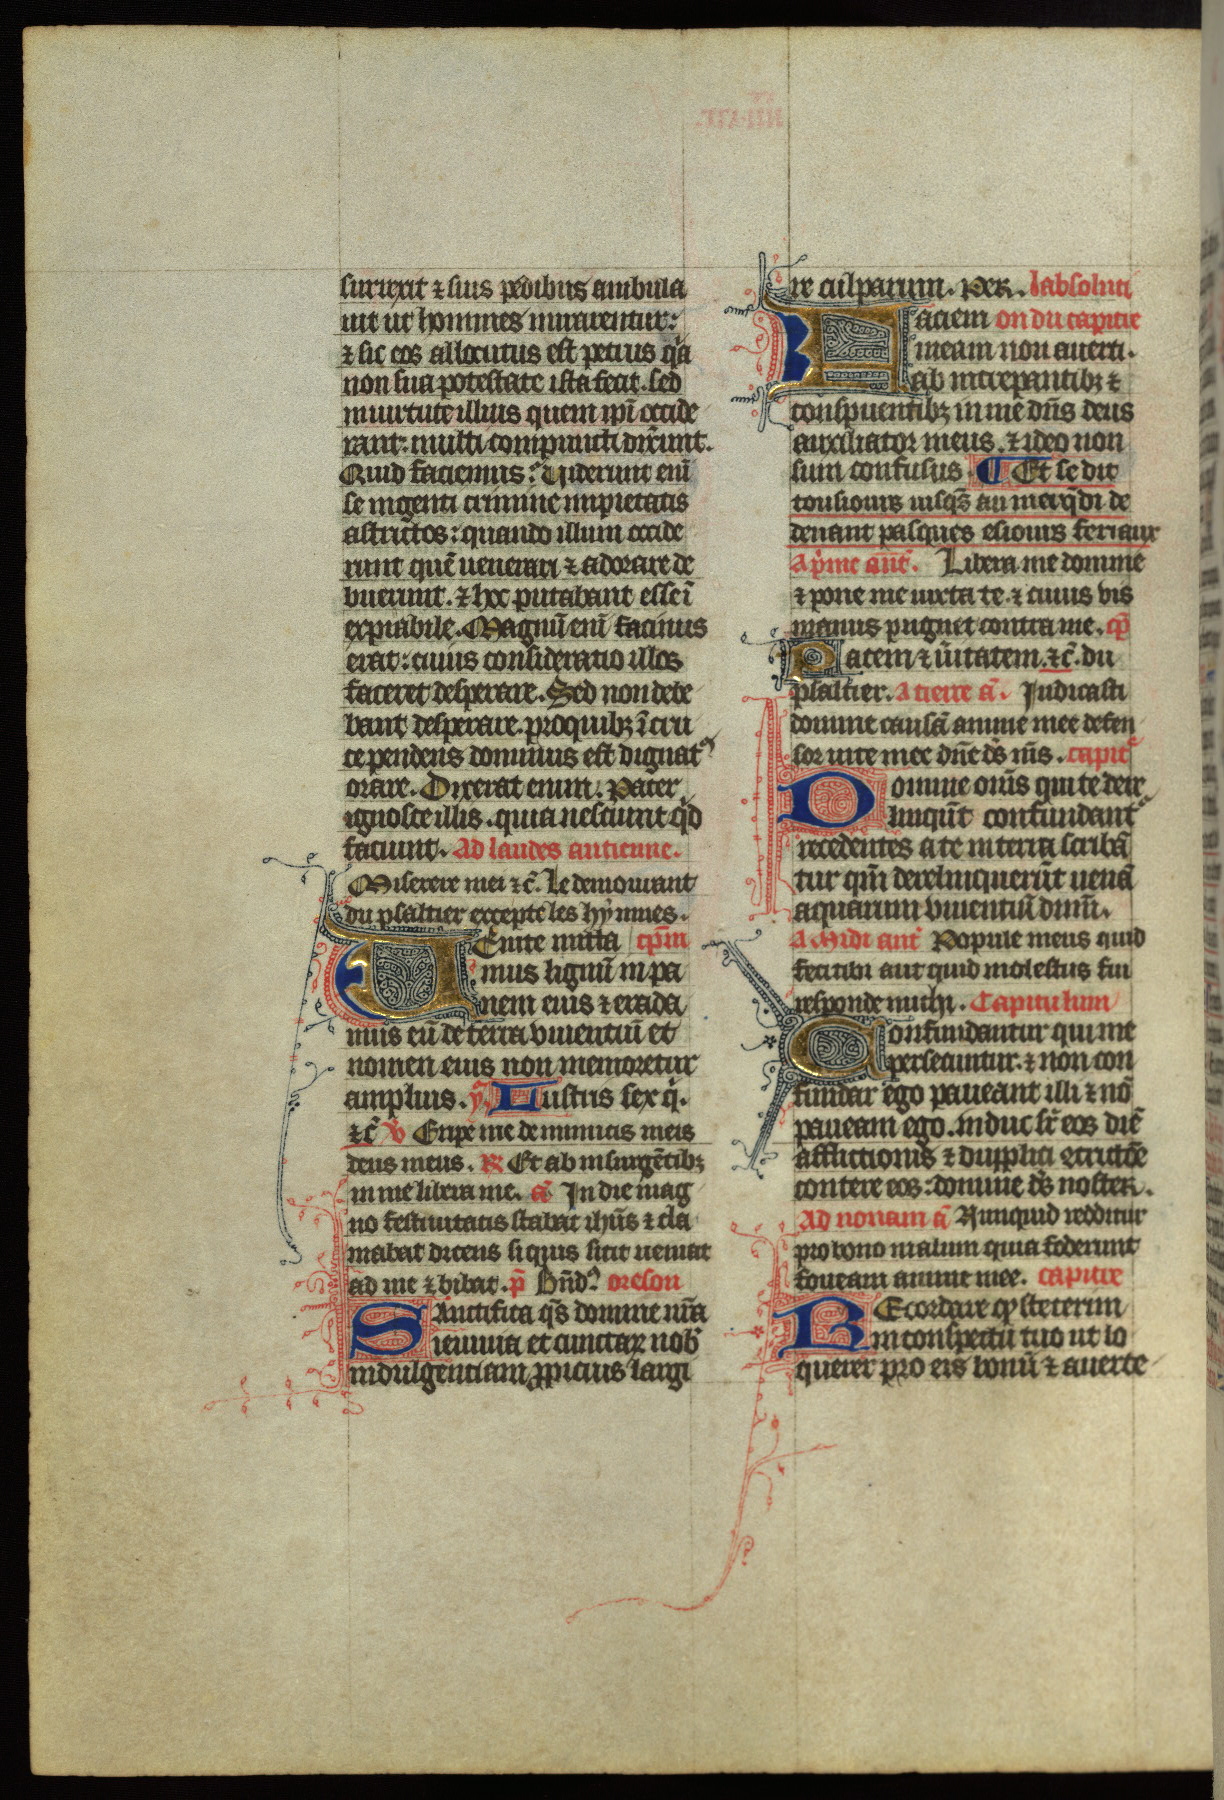 surrexit ⁊ suis pedibus ambula
uit ut homines mirarentur:
⁊ sic eos allocutus est petrus q̇a
non sua potestate ista fecit. sed
in uirtute illius quem ip̄i occide
rant: multi compuncti dix̄unt.
Quid faciemus? Uiderunt eni᷑
se ingenti crimine impietatis
astrictos: quando illum occide
runt quē uenerari ⁊ adorare de
buerunt. ⁊ hoc putabant esse ī
expiabile. Magnū enī facinus
erat: cuius consideratio illos
faceret desperare. Sed non debe
bant desperare. pro quibꝫ ī cru
ce pendens dominus est dignatꝰ
orare. Dixerat enim. Pater
ignosce illis. quia nesciunt qd̓
faciunt. Ad laudes antienne.
Miserere mei ⁊c̄. Le demourant
du psaltier excepte les hymnes.
Uenite mitta cpm̄
mus lignū in pa
nem eius ⁊ erada
mus eū de terra viuentiū et
nomen eius non memoretur
amplius. Lustris sex q̇.
⁊c̄ v̄ Eripe me de inimicis meis
deus meus. ℟ Et ab insurgētibꝫ
in me libera me. ā In die mag
no festiuitatis stabat ihūs ⁊ cla
mabat dicens si quis sitit ueniat
ad me ⁊ bibat. p̄ Bn̄d. oreson
Sanctifica qs̄ domine nr̄a
ieiunia et cunctaꝝ nob̄
indulgentiam ꝓpicius largi
re culparum. Per. labsoluci
Faciem on du capitre
meam non auerti.
ab increpantibꝫ ⁊
conspuentibꝫ in me dn̄s deus
auxiliator meus. ⁊ ideo non
sum confusus. ¶ Et se dit
tousiours iusq̄s au merq̄di de
deuant pasques es iours feriaux
A prime ant̄. Libera me domine
⁊ pone me iuxta te. ⁊ cuius vis
manus pugnet contra me. cp̄
Pacem ⁊ ūitatem. ⁊c̄. du
psaltier. A tierce ā. Iudicasti
domine causā anime mee defen
sor uite mee dn̄e ds̄ m̄s. capite
Domine om̄s qui te dere
linqūt confundantꝰ
recedentes a te in terra scribā
tur qm̄ derelinquerūt uenā
aquarum viuentiū dnm̄.
A Midi ant̄ Popule meus quid
feci tibi aut quid molestus fui
responde michi. Capitulum
Confundantur qui me
persecuntur. ⁊ non con
fundar ego paueant illi ⁊ nō
paueam ego. induc sr̄ eos diē
afflictionis ⁊ dupplici ꝯtritōe
contere eos: domine ds̄ noster.
Ad nonam ā Nunquid redditur
pro bono malum quia foderunt
foueam anime mee. capitre
Recordare qꝫ steterim
in conspectu tuo ut lo
querer pro eis bonū ⁊ auerte